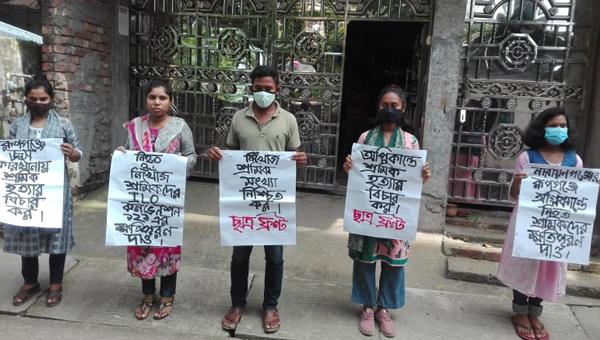 রূপগঞ্জে
জুস
কারখানায়
শ্রমিক
হত্যার
বিচার
কর!
নিহত
নিখোঁজ
শ্রমিকদের
ILO
কনভেনশন
১২১ এ
ক্ষতিপূরণ
দাও!
নিখোঁজ
শ্রমিক
সংখ্যা
নিশ্চিত
কর!
ছাত্র ফ্রন্ট
অগ্নিকান্ডে
শ্রমিক
হত্যার
বিচার
কর!
ছাত্র ফ্রন্ট
নারায়ণগঞ্জের
রূপগঞ্জে
অগ্নিকান্ডে
নিহত
শ্রমিকদের
ক্ষতিপূরণ
দাও!